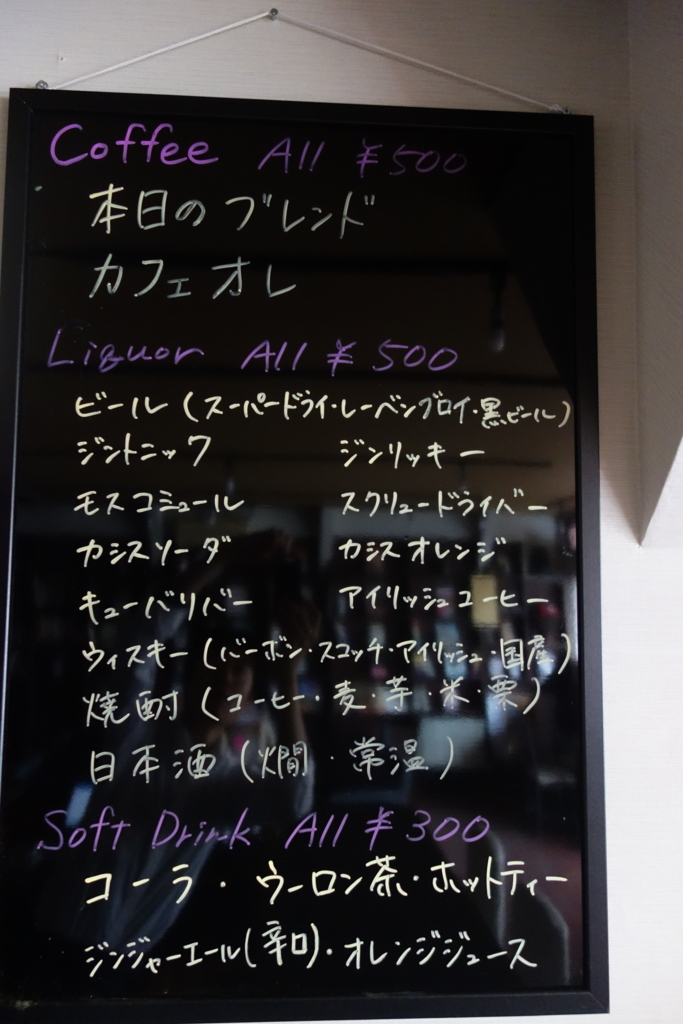 Coffee All ¥500
本日のブレンド
カフェオレ
Liquor All ¥500
ビール(スーパードライ・レーベンブロイ・黒ビール)
ジントニック ジンリッキー
モスコミュール スクリュードライバー
カシスソーダ カシスオレンジ
キューバリバー アイリッシュコーヒー
ウィスキー(バーボン・スコッチ・アイリッシュ・国産)
焼酎(コーヒー・麦・芋・米・栗)
日本酒(燗・常温)
Soft Drink All ¥300
コーラ・ウーロン茶・ホットティー
ジンジャーエール(辛口)・オレンジジュース